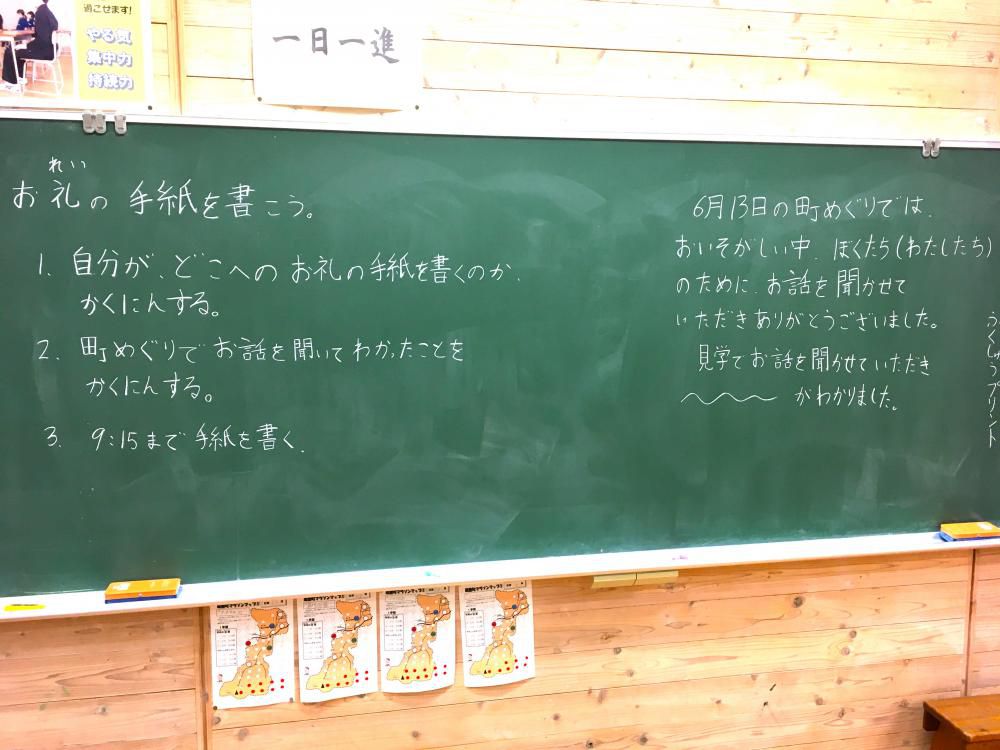 過ごせます!
やる気
集中力
持続力
一日一進
れい
お礼の手紙を書こう。
1. 自分が、どこへのお礼の手紙を書くのか、
かくにんする。
2. 町めぐりでお話を聞いてわかったことを
かくにんする。
3. 9:15まで手紙を書く.
6月13日の町めぐりでは、
おいそがしい中、ぼくたち(わたしたち)
のために、お話を聞かせて
いただきありがとうございました。
見学でお話を聞かせていただき
がわかりました。
ふくしゅうプリント